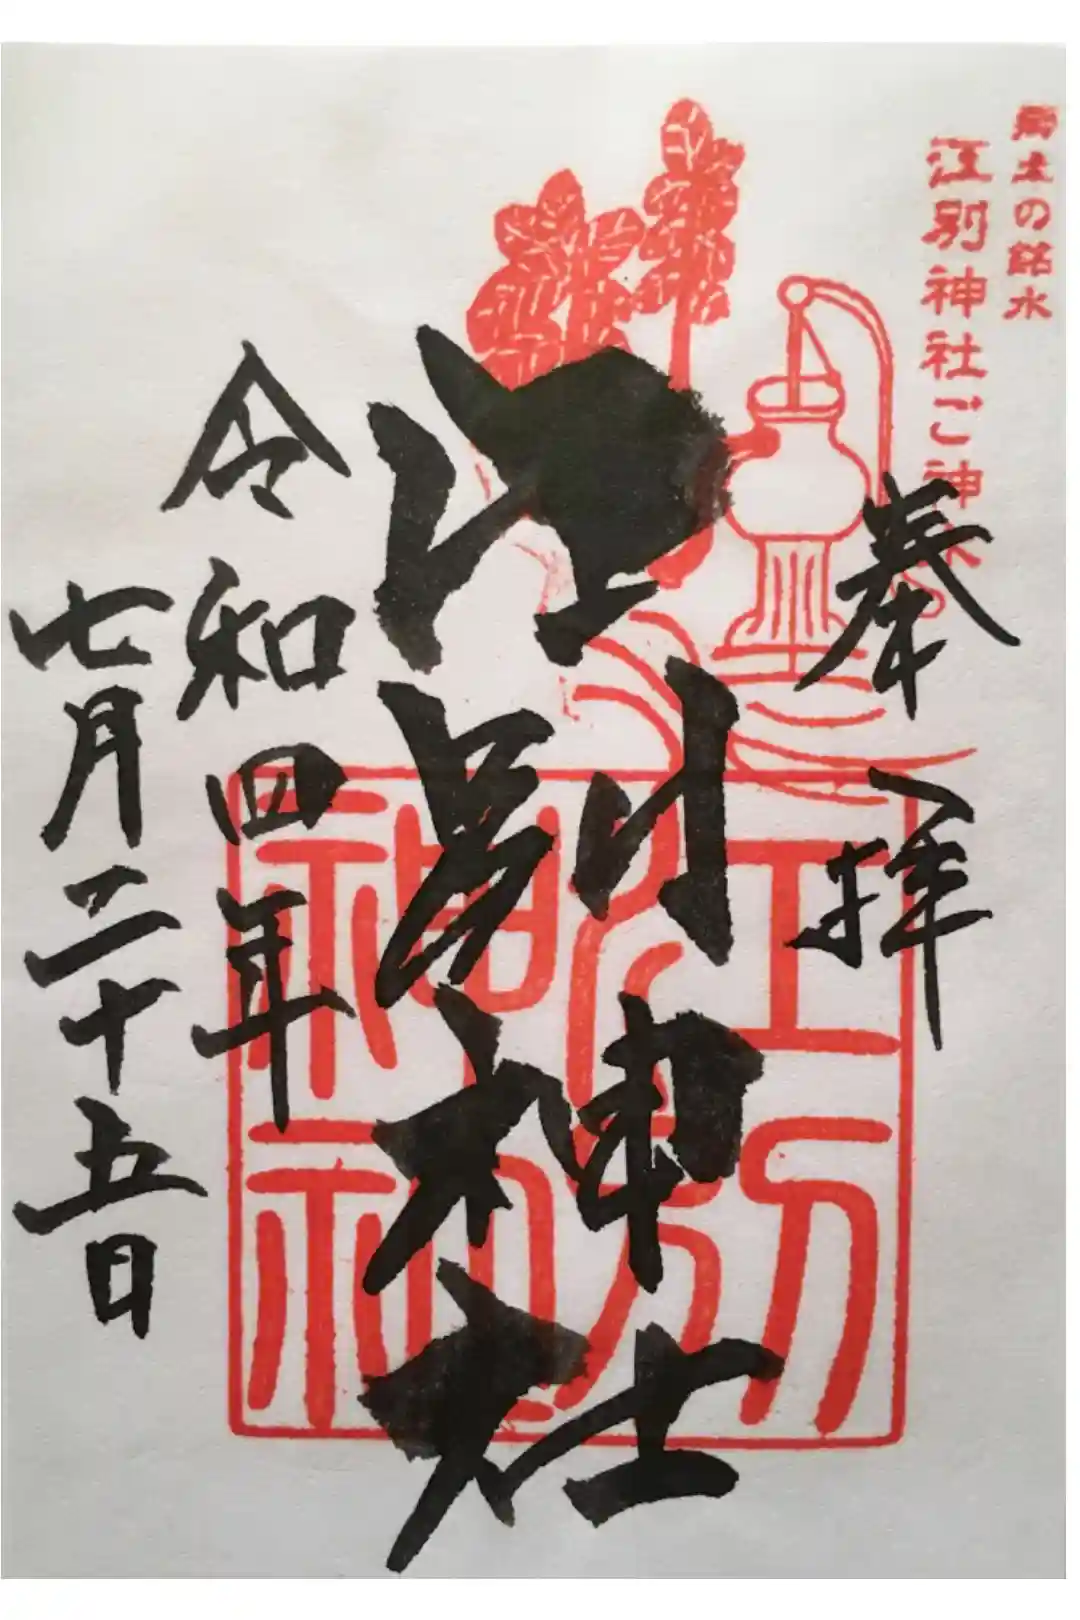 郷土の銘水
江別神社ご神水
奉拝
江別神社
令和四年
七月二十五日
江別神社